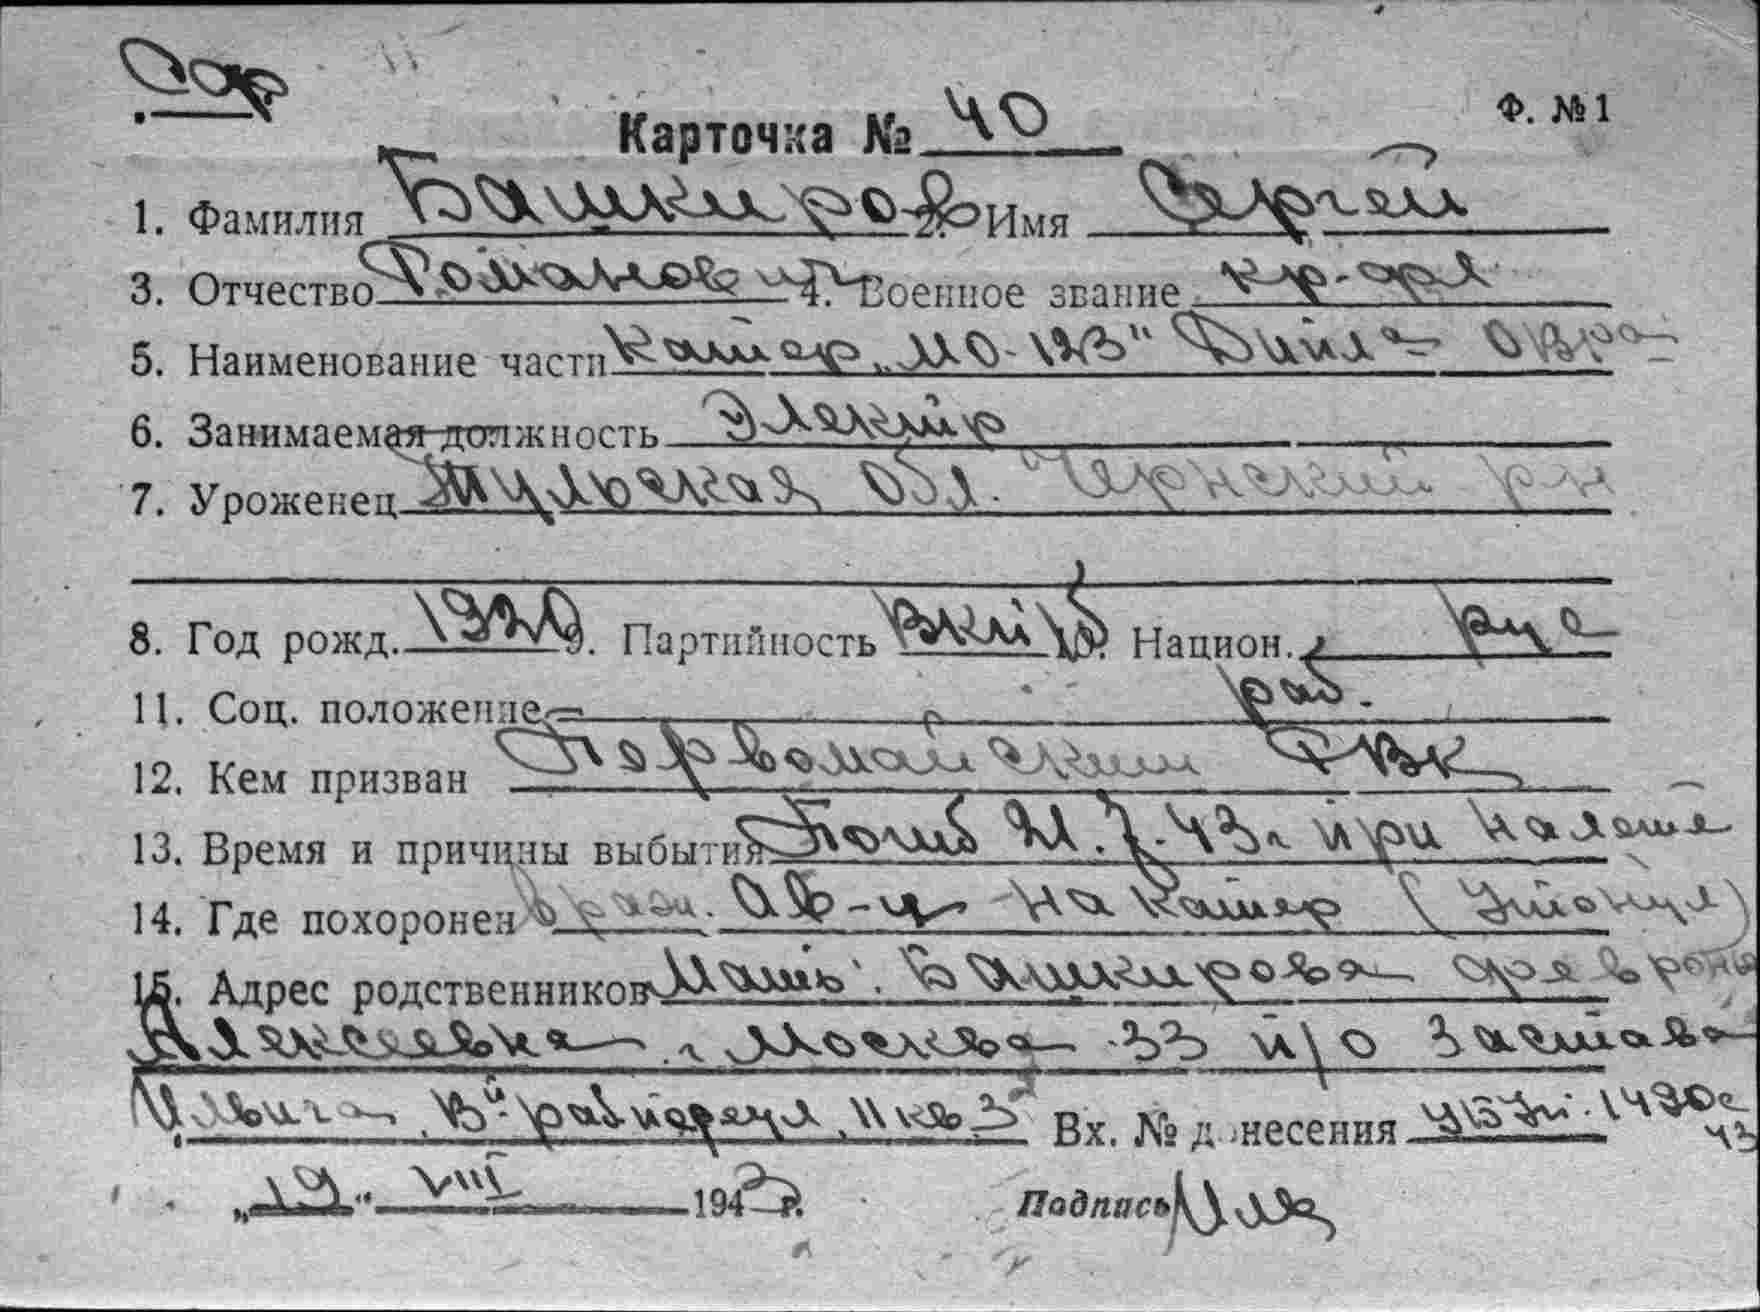 Ф. №1
Карточка № 40
1. Фамилия Башкиров 2. Имя Сергей
3. Отчество Романович 4. Военное звание кр-фл
5. Наименование части Катер „МО-123" ОВРа
6. Занимаемая должность Электр
7. Уроженец Тульская обл. Чернский р-н
8. Год рожд. 1920 9. Партийность ВКПб 10. Национ. рус
11. Соц. положение раб.
12. Кем призван Первомайским РВК
13. Время и причины выбытия Погиб 21.7.43г при налете
14. Где похоронен враж. ав-ции на катер (Утонул)
15. Адрес родственников Мать: Башкирова
Алексеевна г. Москва 33 п/о Застава
Ильича, 11 кв. 3 Вх. № донесения 1490с
43
„19" VIII 1943 г. Подпись